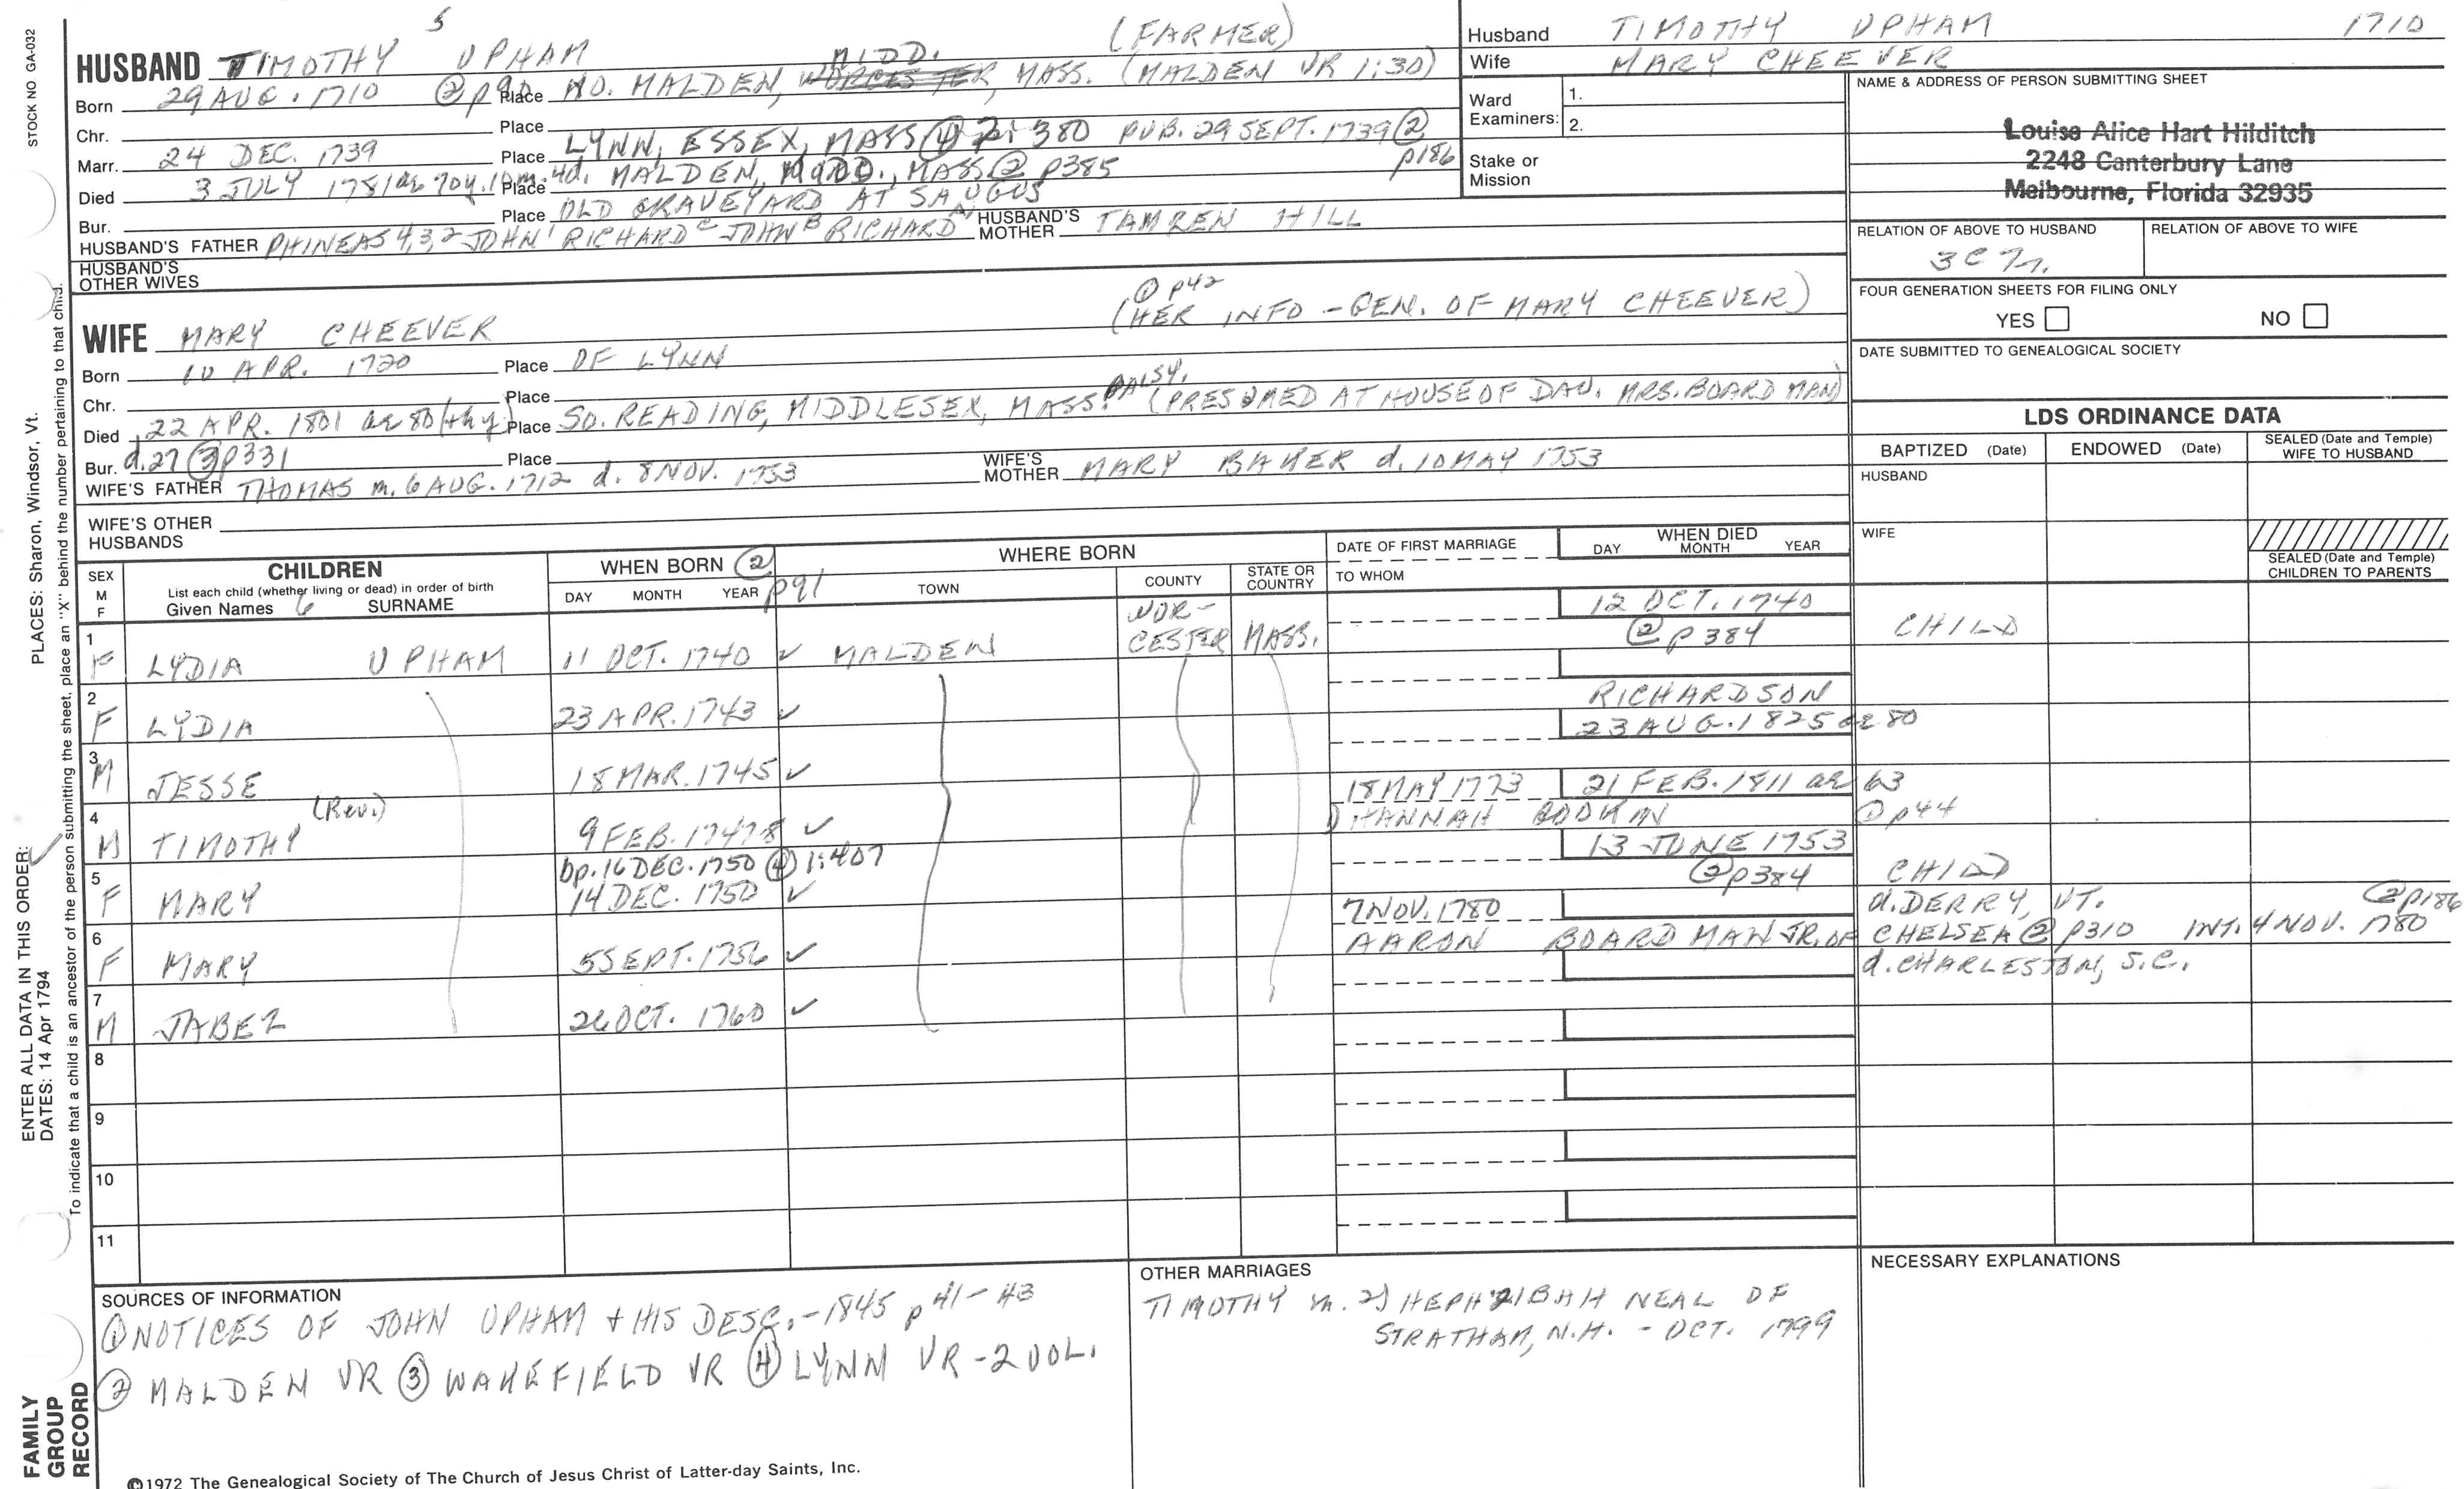 STOCK NO GA-032
5
HUSBAND TIMOTHY UPHAM (FARMER)
MIDD.
Born 29 AUG. 1710 ② p90 Place NO. MALDEN, WORCESTER, MASS. (MALDEN VR 1:30)
Chr. Place
Marr. 24 DEC. 1739 Place LYNN, ESSEX, MASS ④ 2: 380 PUB. 29 SEPT. 1739 ② p186
Died 3 JULY 1781 ae 70y. 10m. 4d. Place MALDEN, MIDD., MASS ② p385
Bur. Place OLD GRAVEYARD AT SAUGUS
HUSBAND'S FATHER PHINEAS 4,3,2 JOHN 1 RICHARD C JOHN B RICHARD A HUSBAND'S MOTHER TAMREN HILL
HUSBAND'S OTHER WIVES
Husband TIMOTHY UPHAM 1710
Wife MARY CHEEVER
Ward Examiners: 1.
2.
Stake or Mission
NAME & ADDRESS OF PERSON SUBMITTING SHEET
Louise Alice Hart Hilditch
2248 Canterbury Lane
Melbourne, Florida 32935
RELATION OF ABOVE TO HUSBAND RELATION OF ABOVE TO WIFE
3C7r.
FOUR GENERATION SHEETS FOR FILING ONLY
YES NO
DATE SUBMITTED TO GENEALOGICAL SOCIETY
① p42
WIFE MARY CHEEVER (HER INFO - GEN. OF MARY CHEEVER)
Born 10 APR. 1720 Place OF LYNN
Chr. Place
PALSY.
Died 22 APR. 1801 ae 80 (4hy) Place SO. READING, MIDDLESEX, MASS. (PRESUMED AT HOUSE OF DAU. MRS. BOARDMAN)
Bur. d. 27 ③ p331 Place
WIFE'S FATHER THOMAS m. 6 AUG. 1712 d. 8 NOV. 1753 WIFE'S MOTHER MARY BAKER d. 10 MAY 1753
WIFE'S OTHER HUSBANDS
LDS ORDINANCE DATA
BAPTIZED (Date) ENDOWED (Date) SEALED (Date and Temple) WIFE TO HUSBAND
HUSBAND
WIFE
SEALED (Date and Temple) CHILDREN TO PARENTS
SEX M F
CHILDREN
List each child (whether living or dead) in order of birth
Given Names 6 SURNAME
WHEN BORN ② p91
DAY MONTH YEAR
WHERE BORN
TOWN COUNTY STATE OR COUNTRY
DATE OF FIRST MARRIAGE
TO WHOM
WHEN DIED
DAY MONTH YEAR
1 F LYDIA UPHAM 11 OCT. 1740 ✓ MALDEN WORCESTER MASS. 12 OCT. 1740 ② p384 CHILD
2 F LYDIA 23 APR. 1743 ✓ RICHARDSON
3 M JESSE 18 MAR. 1745 ✓ 23 AUG. 1825 ae 80
4 M TIMOTHY (Rev.) 9 FEB. 1747 8 ✓ 18 MAY 1773 21 FEB. 1811 ae 63
1) HANNAH GOOKIN ① p44
5 F MARY bp. 16 DEC. 1750 ④ 1:407
14 DEC. 1750 ✓ 13 JUNE 1753 ② p384 CHILD
6 F MARY 5 SEPT. 1756 ✓ 7 NOV. 1780 d. DERRY, VT. ② p186
AARON BOARDMAN JR. OF CHELSEA ② p310 INT. 4 NOV. 1780
7 M JABEZ 26 OCT. 1760 ✓ d. CHARLESTON, S.C.
8
9
10
11
SOURCES OF INFORMATION
① NOTICES OF JOHN UPHAM + HIS DESC. - 1845 p 41-43
② MALDEN VR ③ WAKEFIELD VR ④ LYNN VR - 2 VOL.
OTHER MARRIAGES
TIMOTHY m. 2) HEPHZIBAH NEAL OF
STRATHAM, N.H. - OCT. 1799
NECESSARY EXPLANATIONS
PLACES: Sharon, Windsor, Vt.
ENTER ALL DATA IN THIS ORDER:
DATES: 14 Apr 1794
To indicate that a child is an ancestor of the person submitting the sheet, place an "X" behind the number pertaining to that child.
FAMILY GROUP RECORD
©1972 The Genealogical Society of The Church of Jesus Christ of Latter-day Saints, Inc.